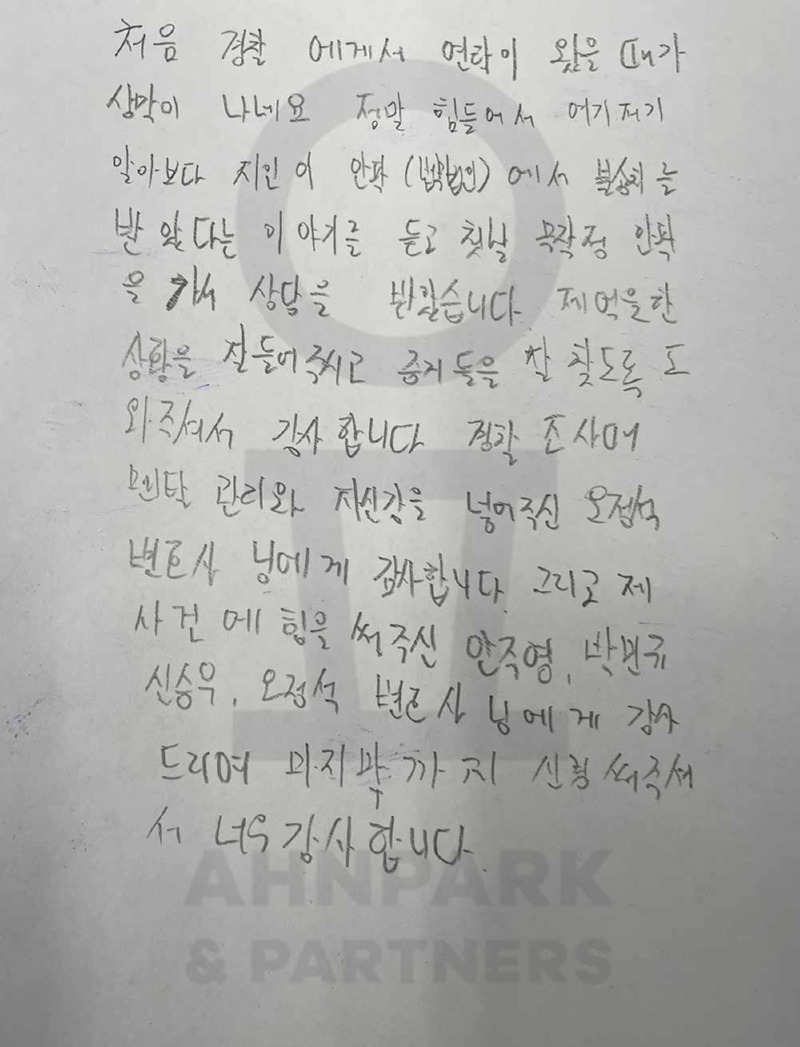 처음 경찰 에게서 연락이 왔을 때가
생각이 나네요 정말 힘들어서 여기저기
알아보다 지인이 안팍 (법무법인) 에서 불송치 를
받았다는 이야기를 듣고 첫날 무작정 안팍
을 가서 상담을 받았습니다. 제 억울한
상황을 잘 들어주시고 증거들을 잘 찾도록 도
와주셔서 감사합니다 경찰 조사에
멘탈 관리와 자신감을 넣어주신 오정석
변호사 님에게 감사합니다. 그리고 제
사건에 힘을 써주신 안주영, 박민규
신승우, 오정석 변호사 님에게 감사
드리며 마지막까지 신경써주셔
서 너무 감사합니다.
AHNPARK
& PARTNERS